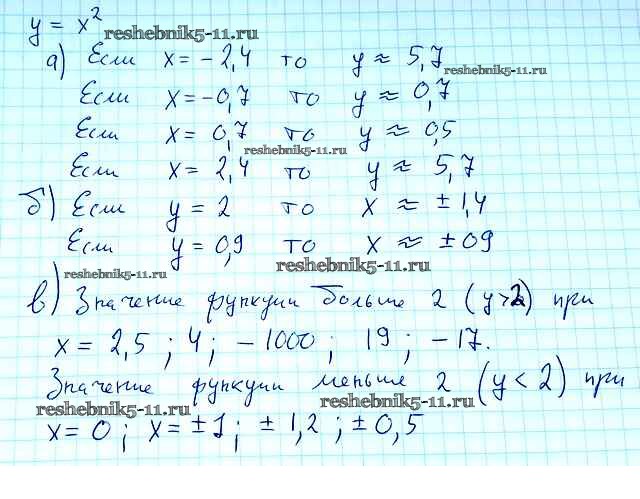 y = x²
reshebnik5-11.ru
а) Если x = -2,4 то y ≈ 5,7
reshebnik5-11.ru
Если x = -0,7 то y ≈ 0,7
Если x = 0,7 то y ≈ 0,5
reshebnik5-11.ru
Если x = 2,4 то y ≈ 5,7
б) Если y = 2 то x ≈ ±1,4
Если y = 0,9 то x ≈ ±09
reshebnik5-11.ru reshebnik5-11.ru
в) Значение функции больше 2 (y>2) при
x = 2,5 ; 4 ; -1000 ; 19 ; -17.
Значение функции меньше 2 (y < 2) при
reshebnik5-11.ru reshebnik5-11.ru
x = 0 ; x = ±1 ; ±1,2 ; ±0,5